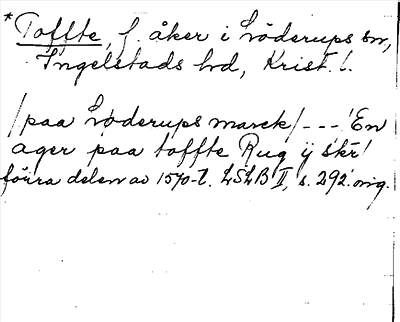 *Toffte, f. åker i Löderups sn,
Ingelstads hd, Krist. l.
/paa Löderups marck/ --- 'En
ager paa toffte Rug ij skr'
förra delen av 1570-t. LSLB II, s. 292. orig.